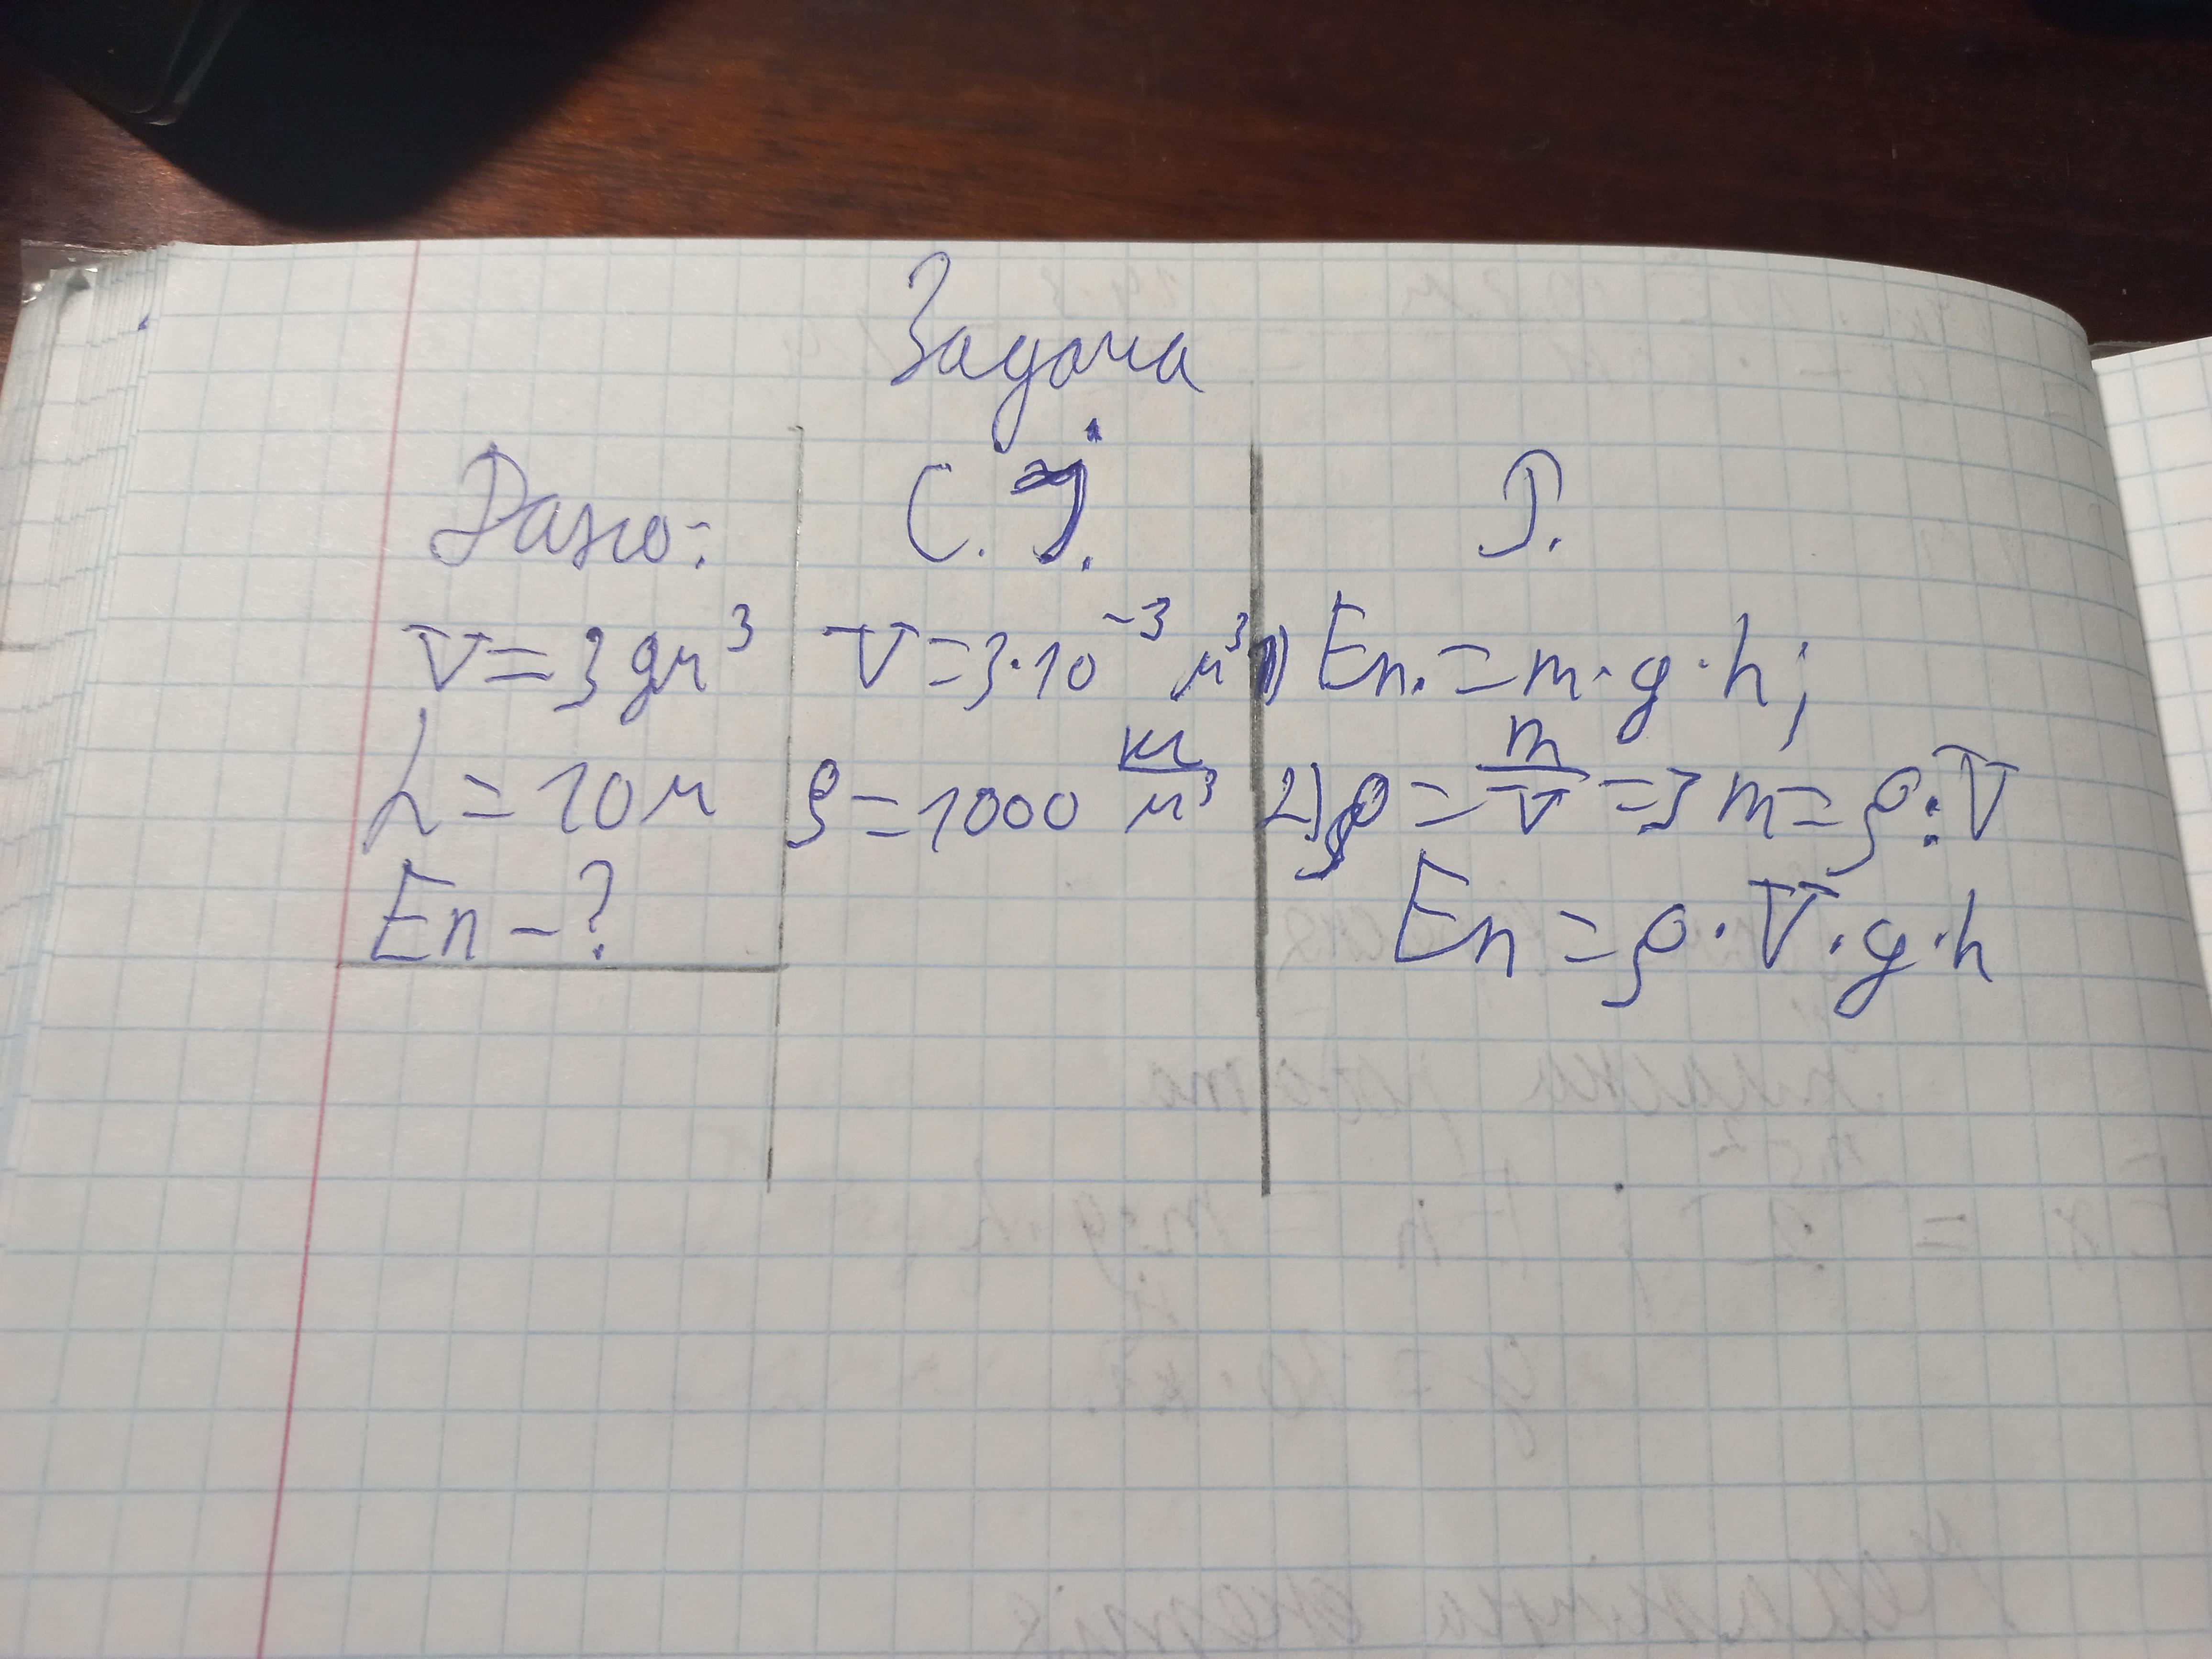 Задача
Дано:
V=3дм³
h=10м
Eп-?
С.І.
V=3·10⁻³ м³
ρ=1000 кг/м³
Р.
1) Eп.=m·g·h;
2) ρ=m/V => m=ρ·V
Eп=ρ·V·g·h